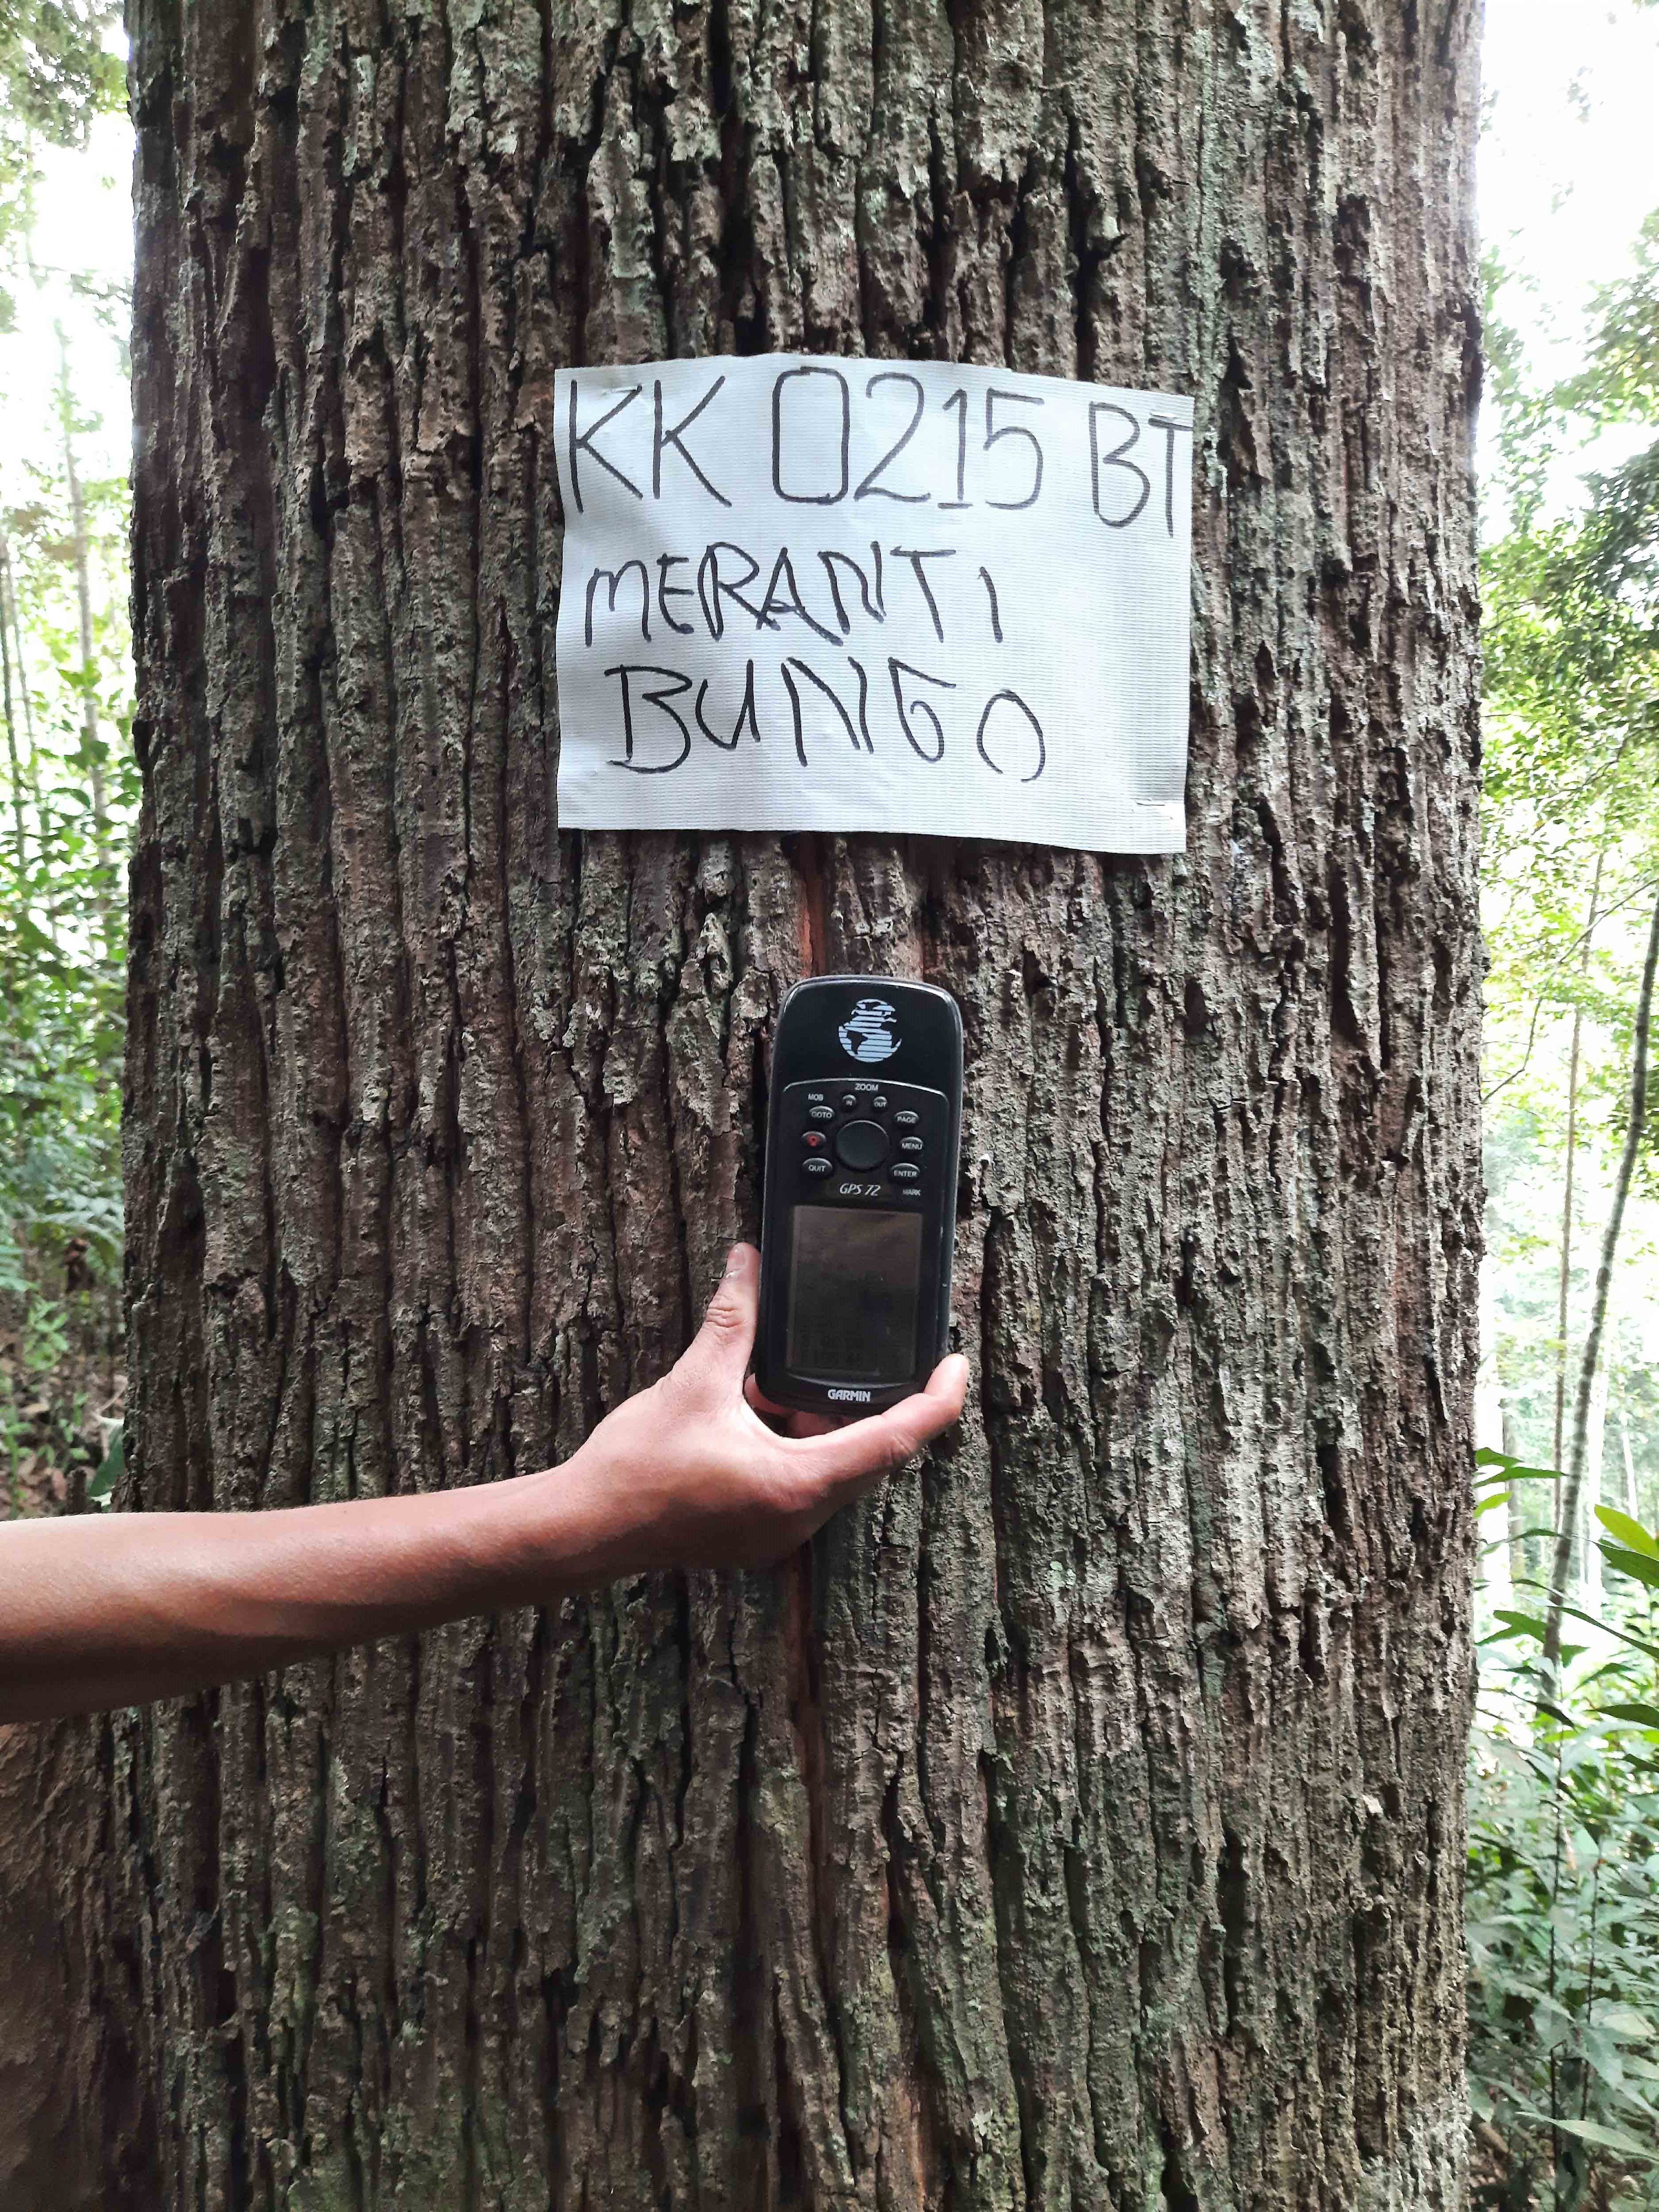 KK 0215 BT
MERANTI
BUNGO
ZOOM
MOB IN OUT
GOTO PAGE
MENU
QUIT ENTER
GPS 72 MARK
GARMIN